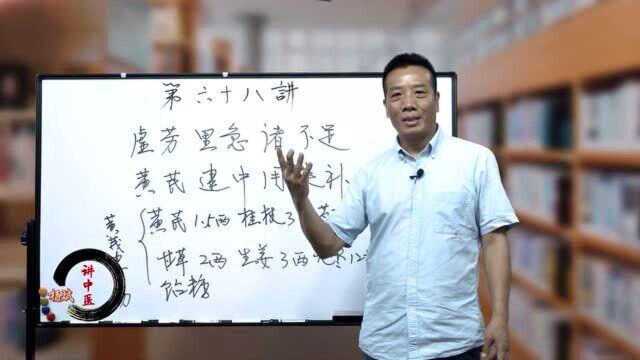 第六十八講
虚劳里急诸不足
黄芪建中用补
黄芪建
黄芪 1.5两 桂枝3
甘草 2两 生姜3两 12
饴糖
讲中医